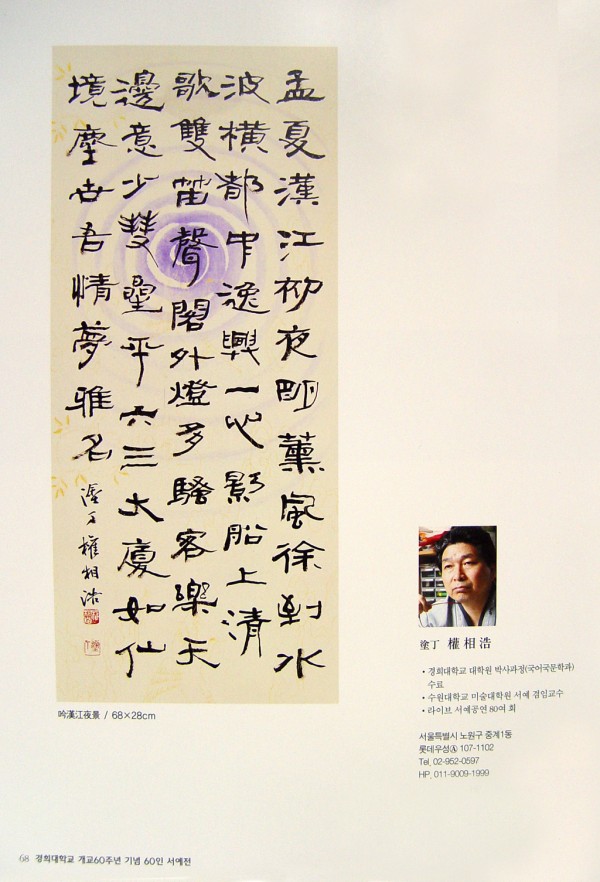 孟夏漢江初夜明薰風徐到水
波橫都中逸興一心影船上清
歌雙笛聲閣外燈多騷客樂天
邊意少雙星平六三大廈如仙
境塵世吾情夢雅名
塗丁權相浩
吟漢江夜景 / 68×28cm
塗丁 權相浩
• 경희대학교 대학원 박사과정(국어국문학과)
수료
• 수원대학교 미술대학원 서예 겸임교수
• 라이브 서예공연 80여 회
서울특별시 노원구 중계1동
롯데우성Ⓐ 107-1102
Tel. 02-952-0597
HP. 011-9009-1999
68 경희대학교 개교60주년 기념 60인 서예전